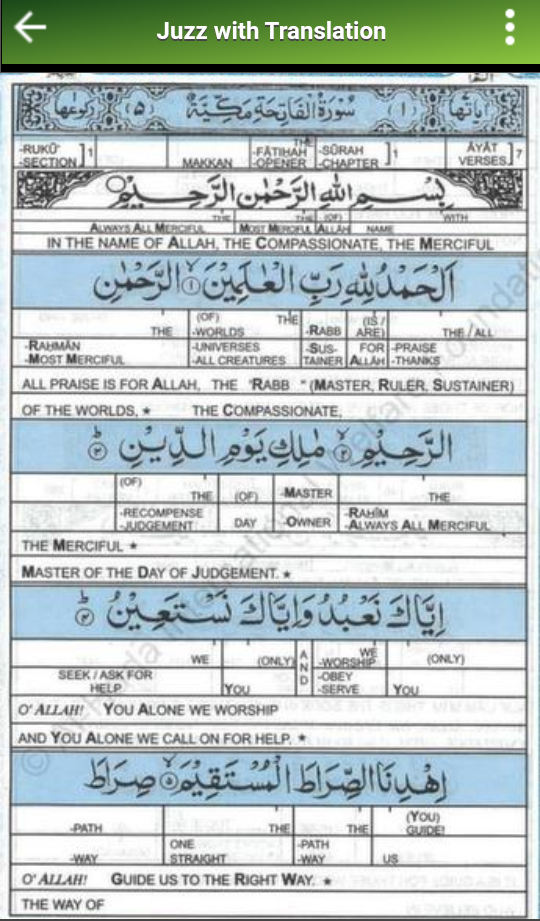 Juzz with Translation
اٰيَاتُهَا (١) سُوْرَةُ الْفَاتِحَةِ مَكِّيَّةٌ (٥) رُكُوْعُهَا
-RUKŪ' -SECTION ] 1 MAKKAN THE -FĀTIHAH -OPENER -SŪRAH -CHAPTER ] 1 ĀYĀT VERSES ] 7
بِسْمِ اللهِ الرَّحْمٰنِ الرَّحِيْمِ
THE THE (OF) WITH
ALWAYS ALL MERCIFUL MOST MERCIFUL ALLĀH NAME
IN THE NAME OF ALLAH, THE COMPASSIONATE, THE MERCIFUL
اَلْحَمْدُ لِلّٰهِ رَبِّ الْعٰلَمِيْنَ ۙ﴿١﴾ الرَّحْمٰنِ
THE (OF) THE (IS / ARE) THE / ALL
-RAHMĀN -WORLDS -RABB FOR -PRAISE
-MOST MERCIFUL -UNIVERSES -SUS- ALLĀH -THANKS
-ALL CREATURES TAINER
ALL PRAISE IS FOR ALLAH, THE "RABB " (MASTER, RULER, SUSTAINER)
OF THE WORLDS, ★ THE COMPASSIONATE,
الرَّحِيْمِ ۙ﴿٢﴾ مٰلِكِ يَوْمِ الدِّيْنِ ؕ﴿٣﴾
(OF) THE (OF) -MASTER THE
-RECOMPENSE -RAHĪM
-JUDGEMENT DAY -OWNER -ALWAYS ALL MERCIFUL
THE MERCIFUL ★
MASTER OF THE DAY OF JUDGEMENT. ★
اِيَّاكَ نَعْبُدُ وَاِيَّاكَ نَسْتَعِيْنُ ؕ﴿٤﴾
WE (ONLY) AND WE (ONLY)
-WORSHIP
SEEK / ASK FOR -OBEY
HELP YOU -SERVE YOU
O' ALLAH! YOU ALONE WE WORSHIP
AND YOU ALONE WE CALL ON FOR HELP. ★
اِهْدِنَا الصِّرَاطَ الْمُسْتَقِيْمَ ۙ﴿٥﴾ صِرَاطَ
-PATH THE THE (YOU) GUIDE!
-WAY ONE STRAIGHT -PATH -WAY US
O' ALLAH! GUIDE US TO THE RIGHT WAY. ★
THE WAY OF